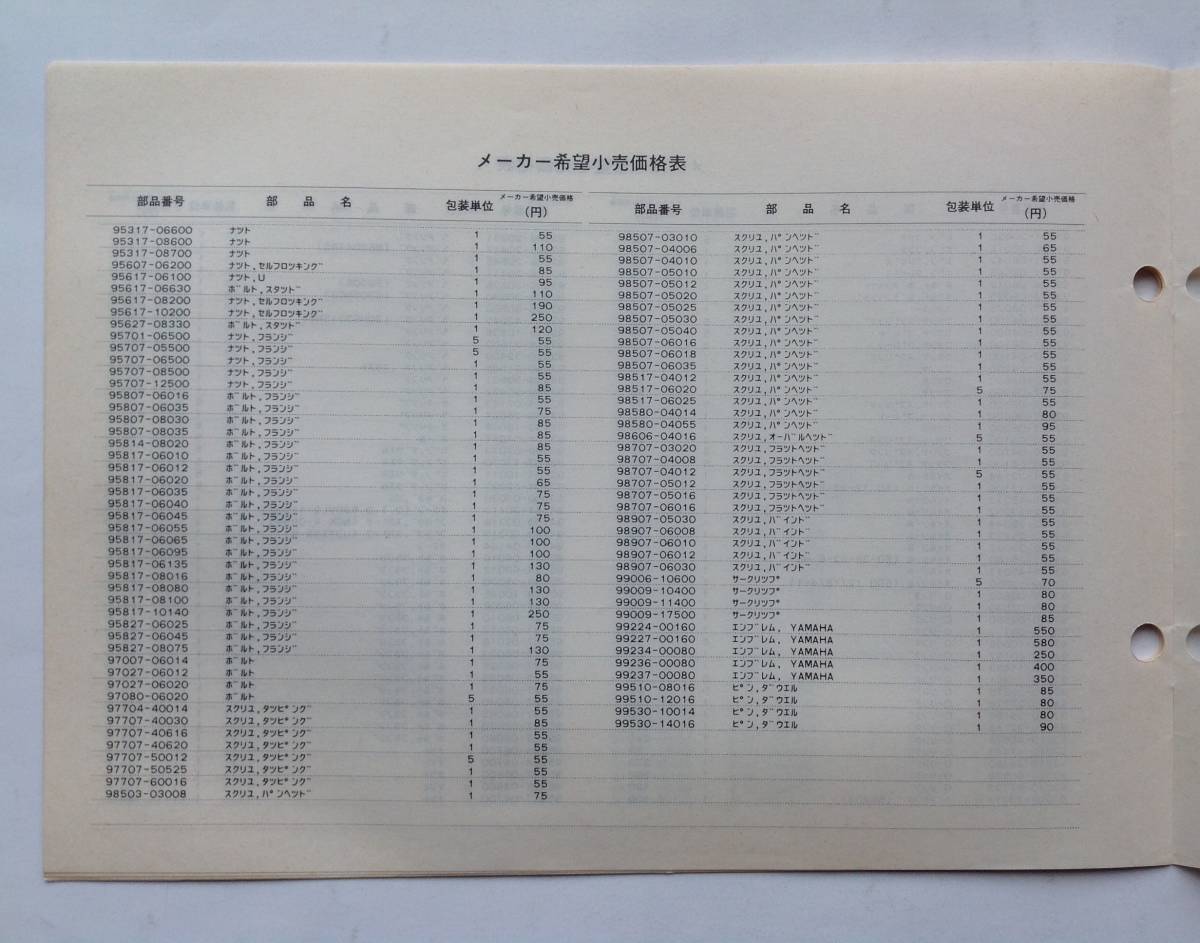 メーカー希望小売価格表
部品番号 部品名 包装単位 メーカー希望小売価格(円)
95317-06600 ナツト 1 55
95317-08600 ナツト 1 110
95317-08700 ナツト 1 55
95607-06200 ナツト,セルフロツキング 1 85
95617-06100 ナツト,U 1 95
95617-06630 ボルト,スタツド 1 110
95617-08200 ナツト,セルフロツキング 1 190
95617-10200 ナツト,セルフロツキング 1 250
95627-08330 ボルト,スタツド 1 120
95701-06500 ナツト,フランジ 5 55
95707-05500 ナツト,フランジ 5 55
95707-06500 ナツト,フランジ 1 55
95707-08500 ナツト,フランジ 1 55
95707-12500 ナツト,フランジ 1 85
95807-06016 ボルト,フランジ 1 55
95807-06035 ボルト,フランジ 1 75
95807-08030 ボルト,フランジ 1 85
95807-08035 ボルト,フランジ 1 85
95814-08020 ボルト,フランジ 1 85
95817-06010 ボルト,フランジ 1 55
95817-06012 ボルト,フランジ 1 55
95817-06020 ボルト,フランジ 1 65
95817-06035 ボルト,フランジ 1 75
95817-06040 ボルト,フランジ 1 75
95817-06045 ボルト,フランジ 1 75
95817-06055 ボルト,フランジ 1 100
95817-06065 ボルト,フランジ 1 100
95817-06095 ボルト,フランジ 1 100
95817-06135 ボルト,フランジ 1 130
95817-08016 ボルト,フランジ 1 80
95817-08080 ボルト,フランジ 1 130
95817-08100 ボルト,フランジ 1 130
95817-10140 ボルト,フランジ 1 250
95827-06025 ボルト,フランジ 1 75
95827-06045 ボルト,フランジ 1 75
95827-08075 ボルト,フランジ 1 130
97007-06014 ボルト 1 75
97027-06012 ボルト 1 55
97027-06020 ボルト 1 75
97080-06020 ボルト 5 55
97704-40014 スクリユ,タツピング 1 55
97707-40030 スクリユ,タツピング 1 85
97707-40616 スクリユ,タツピング 1 55
97707-40620 スクリユ,タツピング 1 55
97707-50012 スクリユ,タツピング 5 55
97707-50525 スクリユ,タツピング 1 55
97707-60016 スクリユ,タツピング 1 55
98503-03008 スクリユ,パンヘツド 1 75
部品番号 部品名 包装単位 メーカー希望小売価格(円)
98507-03010 スクリユ,パンヘツド 1 55
98507-04006 スクリユ,パンヘツド 1 65
98507-04010 スクリユ,パンヘツド 1 55
98507-05010 スクリユ,パンヘツド 1 55
98507-05012 スクリユ,パンヘツド 1 55
98507-05020 スクリユ,パンヘツド 1 55
98507-05025 スクリユ,パンヘツド 1 55
98507-05030 スクリユ,パンヘツド 1 55
98507-05040 スクリユ,パンヘツド 1 55
98507-06016 スクリユ,パンヘツド 1 55
98507-06018 スクリユ,パンヘツド 1 55
98507-06035 スクリユ,パンヘツド 1 55
98517-04012 スクリユ,パンヘツド 1 55
98517-06020 スクリユ,パンヘツド 5 75
98517-06025 スクリユ,パンヘツド 1 55
98580-04014 スクリユ,パンヘツド 1 80
98580-04055 スクリユ,パンヘツド 1 95
98606-04016 スクリユ,オーバルヘツド 5 55
98707-03020 スクリユ,フラツトヘツド 1 55
98707-04008 スクリユ,フラツトヘツド 1 55
98707-04012 スクリユ,フラツトヘツド 5 55
98707-05012 スクリユ,フラツトヘツド 1 55
98707-05016 スクリユ,フラツトヘツド 1 55
98707-06016 スクリユ,フラツトヘツド 1 55
98907-05030 スクリユ,バインド 1 55
98907-06008 スクリユ,バインド 1 55
98907-06010 スクリユ,バインド 1 55
98907-06012 スクリユ,バインド 1 55
98907-06030 スクリユ,バインド 1 55
99006-10600 サークリツプ 5 70
99009-10400 サークリツプ 1 80
99009-11400 サークリツプ 1 80
99009-17500 サークリツプ 1 85
99224-00160 エンブレム, YAMAHA 1 550
99227-00160 エンブレム, YAMAHA 1 580
99234-00080 エンブレム, YAMAHA 1 250
99236-00080 エンブレム, YAMAHA 1 400
99237-00080 エンブレム, YAMAHA 1 350
99510-08016 ピン,ダウエル 1 85
99510-12016 ピン,ダウエル 1 80
99530-10014 ピン,ダウエル 1 80
99530-14016 ピン,ダウエル 1 90